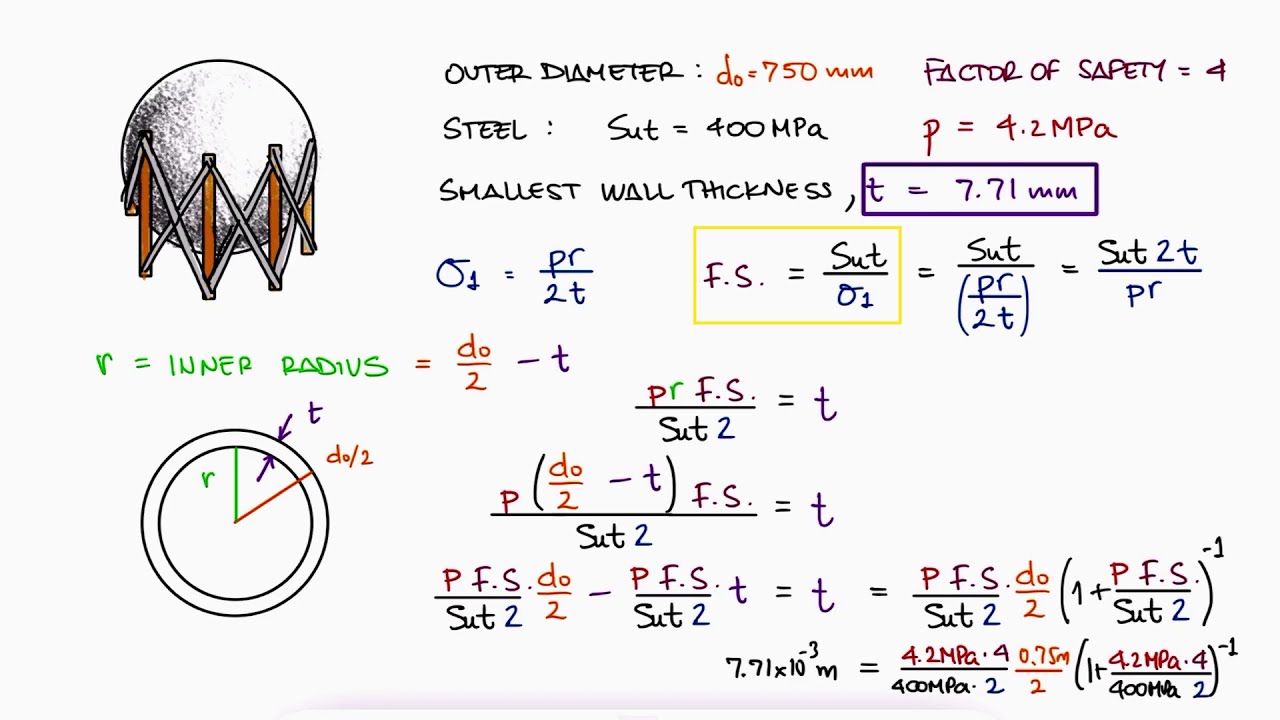 OUTER DIAMETER : do = 750 mm FACTOR OF SAFETY = 4
STEEL : Sut = 400 MPa p = 4.2 MPa
SMALLEST WALL THICKNESS , t = 7.71 mm
σ1 = pr/2t F.S. = Sut/σ1 = Sut/(pr/2t) = Sut 2t/pr
r = INNER RADIUS = do/2 - t
pr F.S./Sut 2 = t
t
do/2
r
p (do/2 - t) F.S./Sut 2 = t
P F.S./Sut 2 · do/2 - P F.S./Sut 2 · t = t = P F.S./Sut 2 · do/2 (1 + P F.S./Sut 2)^-1
7.71 x 10^-3 m = 4.2 MPa · 4/400 MPa · 2 0.75m/2 (1 + 4.2 MPa · 4/400 MPa 2)^-1